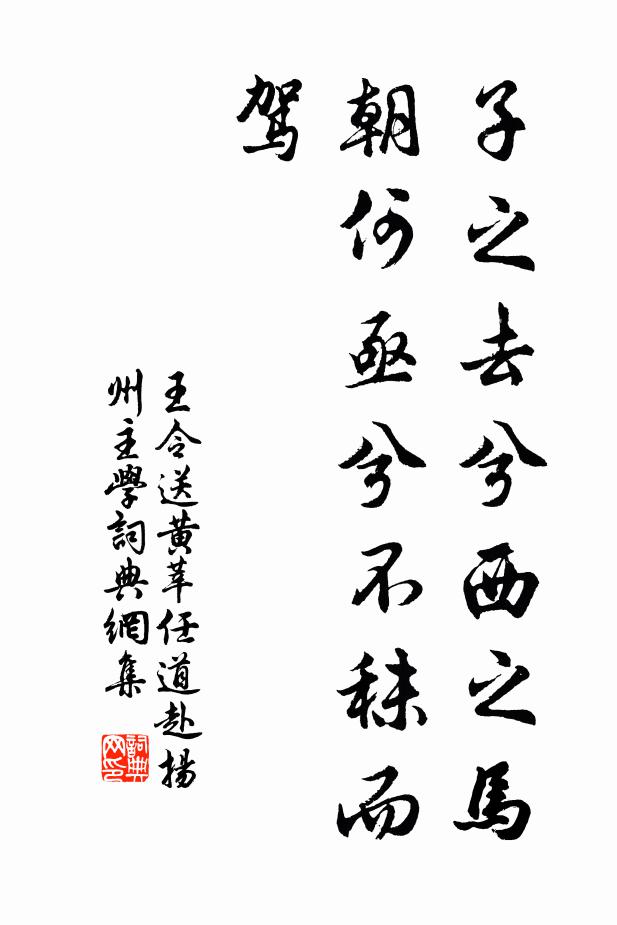 子之去兮西之馬
朝何亟兮不秣而
駕
王令送黄莘任道赴揚
州主學詞典網集
詞典網印